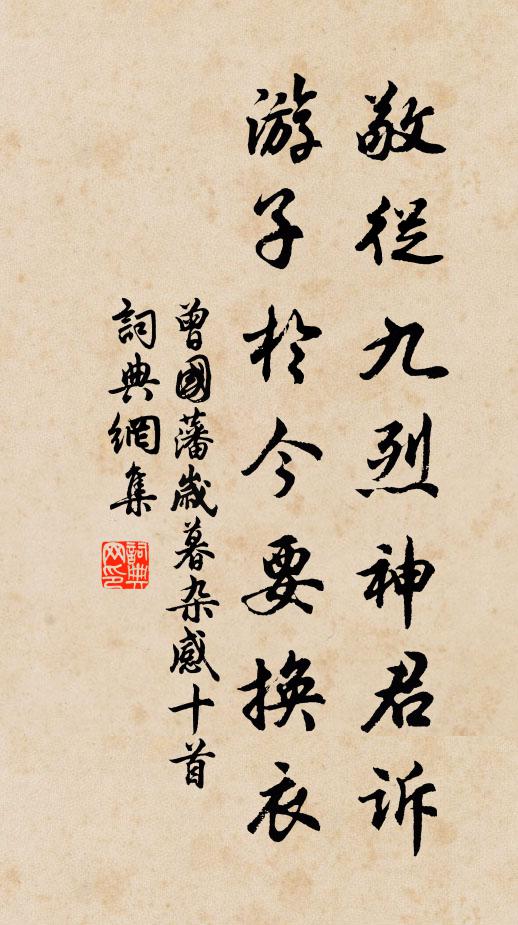 敬從九烈神君訴
游子於今要換衣
曾國藩歲暮杂感十首
詞典網集
詞典网印